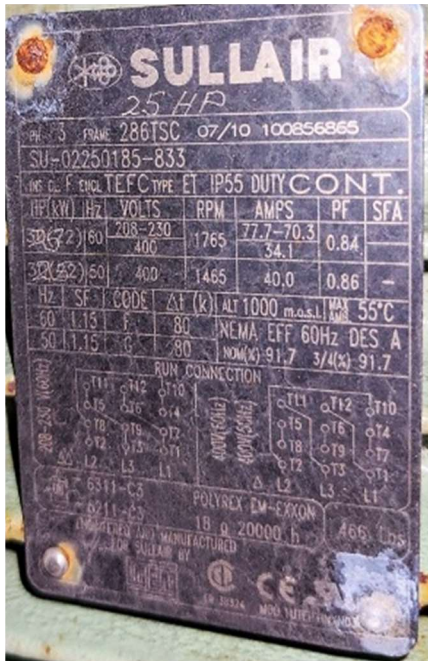 SULLAIR
25 HP
PH 3 FRAME 286TSC 07/10 100856865
SU-02250185-833
INS CL F ENCL TEFC TYPE ET IP55 DUTY CONT.
HP(kW) Hz VOLTS RPM AMPS PF SFA
60 208-230 1765 77.7-70.3 0.84
400 34.1
50 400 1465 40.0 0.86 -
Hz SF CODE Δt (k) ALT 1000 m.o.s.l. MAX AMB 55°C
60 1.15 F 80 NEMA EFF 60Hz DES A
50 1.15 80 NOM(%) 91.7 3/4(%) 91.7
RUN CONNECTION
208-230 V(60Hz)
T11 T12 T10
T5 T6 T4
T8 T9 T7
T2 T3 T1
L2 L3 L1
T11 T12 T10
T5 T6 T4
T8 T9 T7
T2 T3 T1
Δ L2 L3 L1
6311-C3
6211-C3
POLYREX EM-EXXON
18 g 20000 h
466 Lbs
ENGINEERED AND MANUFACTURED
FOR SULLAIR BY
CE